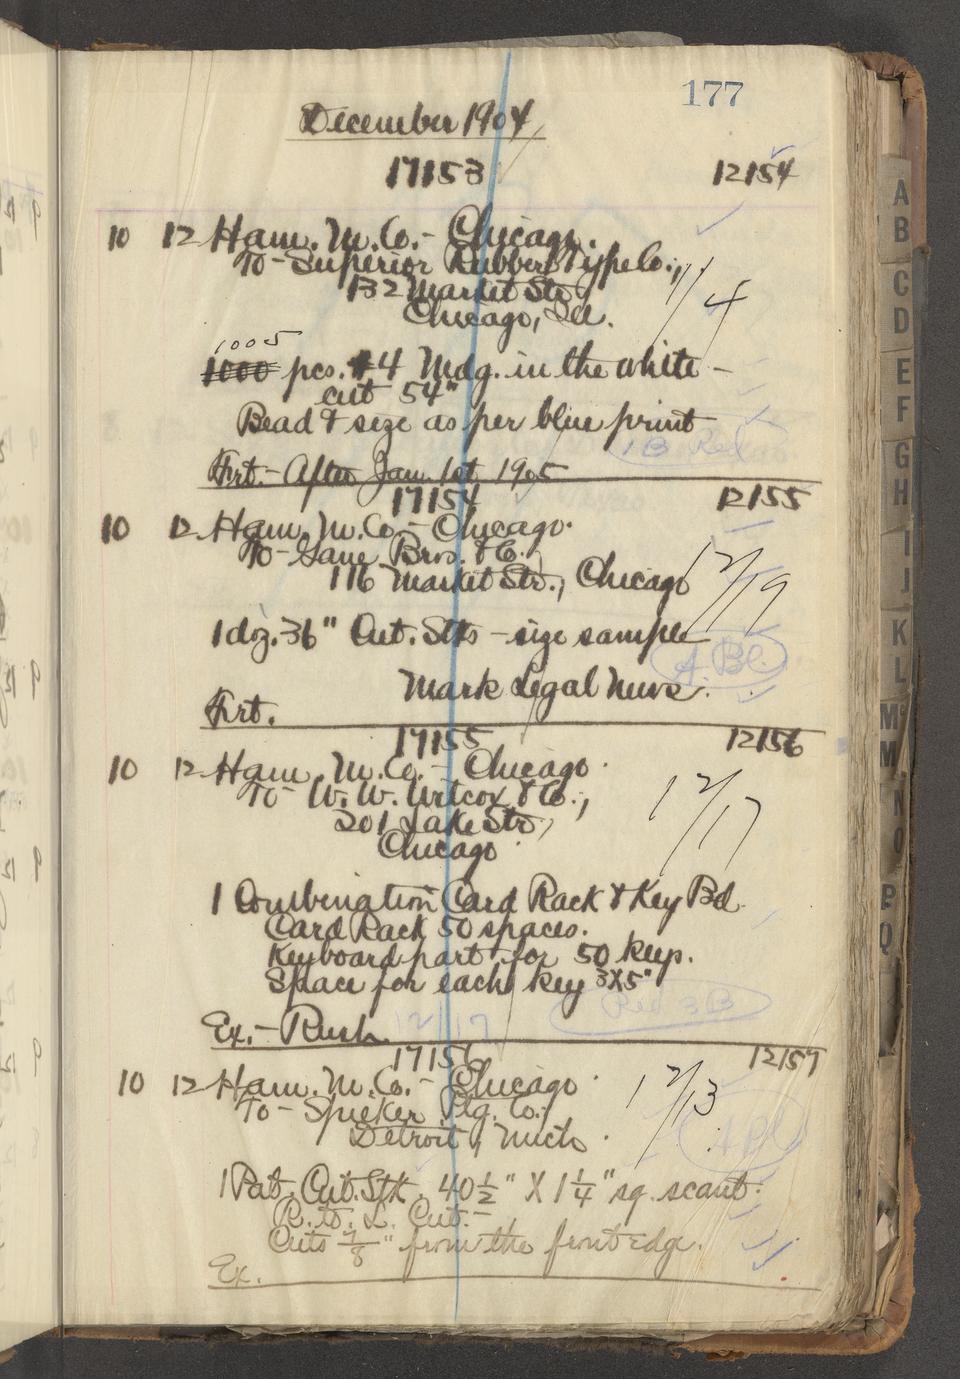 177
December 1904
17153 12154
10 12 Ham. M. Co. - Chicago.
To - Superior Rubber Type Co.,
132 Market Str.
Chicago, Ill.
1/4
1005
1000 pcs. #4 Mdg. in the white -
cut 54"
Bead & size as per blue print
1B Red
Frt. - After Jan. 1st 1905
17154 12155
10 12 Ham. M. Co. - Chicago.
To - Lane Bros. & Co.
116 Market Str., Chicago
12/19
1 doz. 36" Cut. Stks - size sample
A. Bl.
Mark Legal News.
Frt.
17155 12156
10 12 Ham. M. Co. - Chicago.
To - W. W. Wilcox & Co.,
201 Lake Str,
Chicago
12/17
1 Combination Card Rack & Key Bd.
Card Rack 50 spaces.
Keyboard part for 50 keys.
Space for each key 3X5"
Red 3B
Ex. - Rush 12/17
17156 12157
10 12 Ham. M. Co. - Chicago
To - Spieker Ptg. Co.,
Detroit, Mich.
12/13
A Bl
1 Pat. Cut. Stk. 40 1/2" X 1 1/4" sq. scant.
R. to L. Cut. -
Cuts 7/8" from the front edge.
Ex.
A
B
C
D
E
F
G
H
I
J
K
L
Mc
M
N
O
P
Q